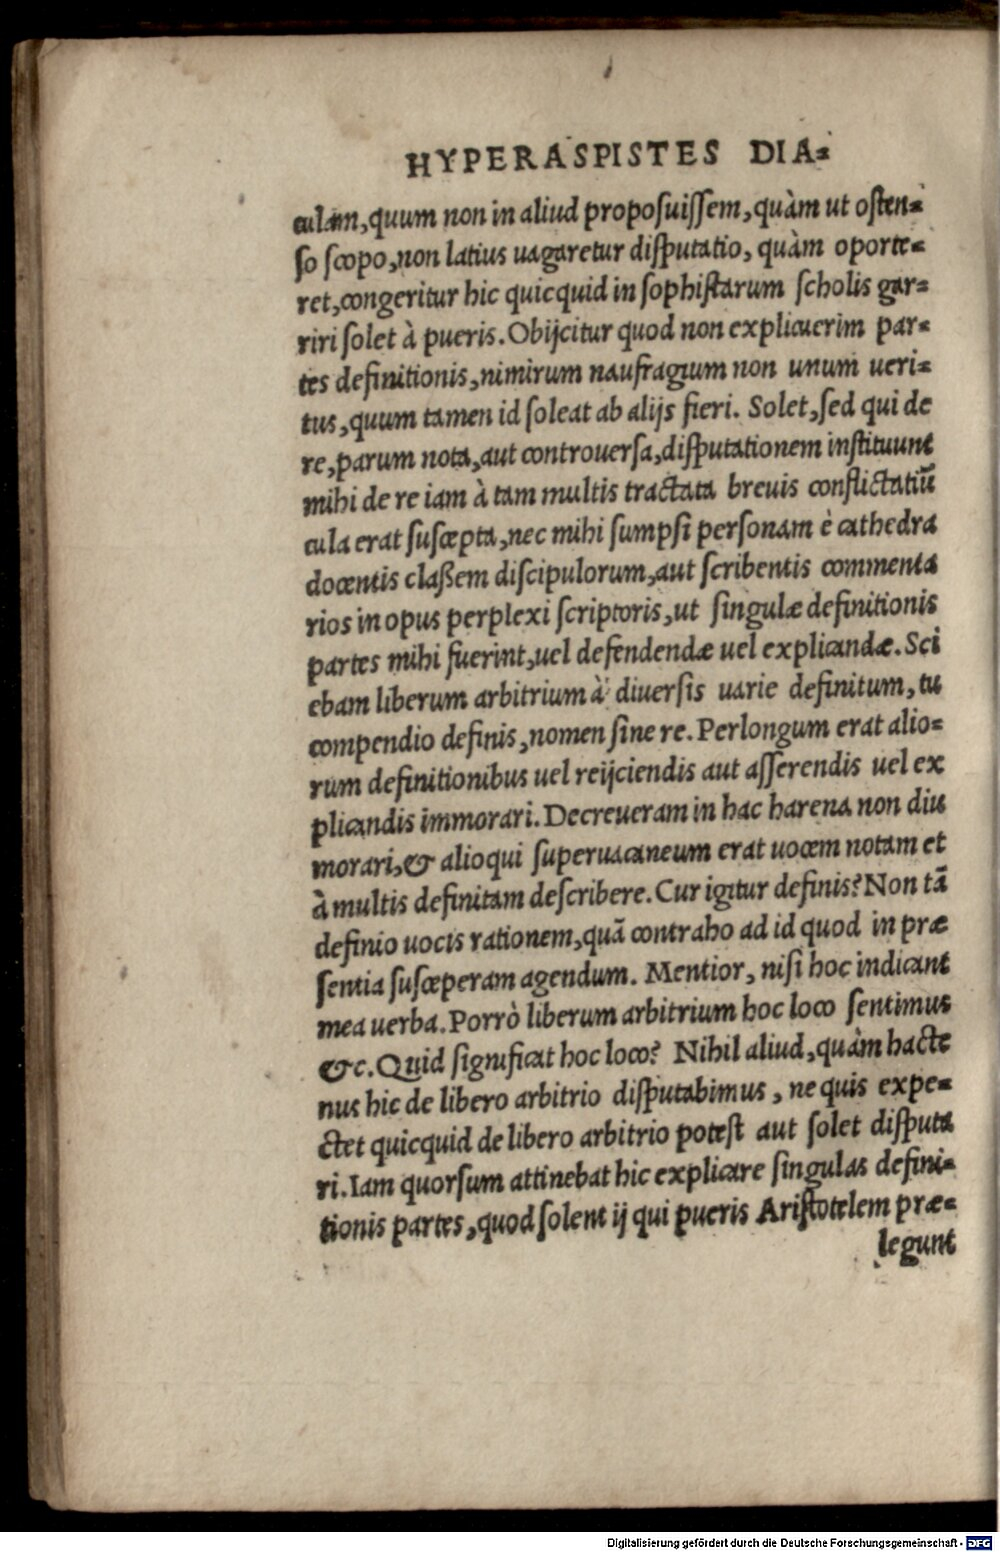 HYPERASPISTES DIA-
culam, quum non in aliud proposuissem, quàm ut osten-
so scopo, non latius uagaretur disputatio, quàm oporte-
ret, congeritur hic quicquid in sophistarum scholis gar-
riri solet à pueris. Obijcitur quod non explicuerim par-
tes definitionis, nimirum naufragium non unum ueri-
tus, quum tamen id soleat ab alijs fieri. Solet, sed qui de
re, parum nota, aut controuersa, disputationem instituunt
mihi de re iam à tam multis tractata breuis conflictatiũ
cula erat suscepta, nec mihi sumpsi personam è cathedra
docentis claßem discipulorum, aut scribentis commenta
rios in opus perplexi scriptoris, ut singulæ definitionis
partes mihi fuerint, uel defendendæ uel explicandæ. Sci
ebam liberum arbitrium à diuersis uarie definitum, tu
compendio definis, nomen sine re. Perlongum erat alio-
rum definitionibus uel reijciendis aut asserendis uel ex
plicandis immorari. Decreueram in hac harena non diu
morari, & alioqui superuacaneum erat uocem notam et
à multis definitam describere. Cur igitur definis? Non tã
definio uocis rationem, quã contraho ad id quod in præ
sentia susceperam agendum. Mentior, nisi hoc indicant
mea uerba. Porrò liberum arbitrium hoc loco sentimus
&c. Quid significat hoc loco? Nihil aliud, quàm hacte
nus hic de libero arbitrio disputabimus, ne quis expe-
ctet quicquid de libero arbitrio potest aut solet disputa
ri. Iam quorsum attinebat hic explicare singulas defini-
tionis partes, quod solent ij qui pueris Aristotelem præ-
legunt
Digitalisierung gefördert durch die Deutsche Forschungsgemeinschaft - DFG